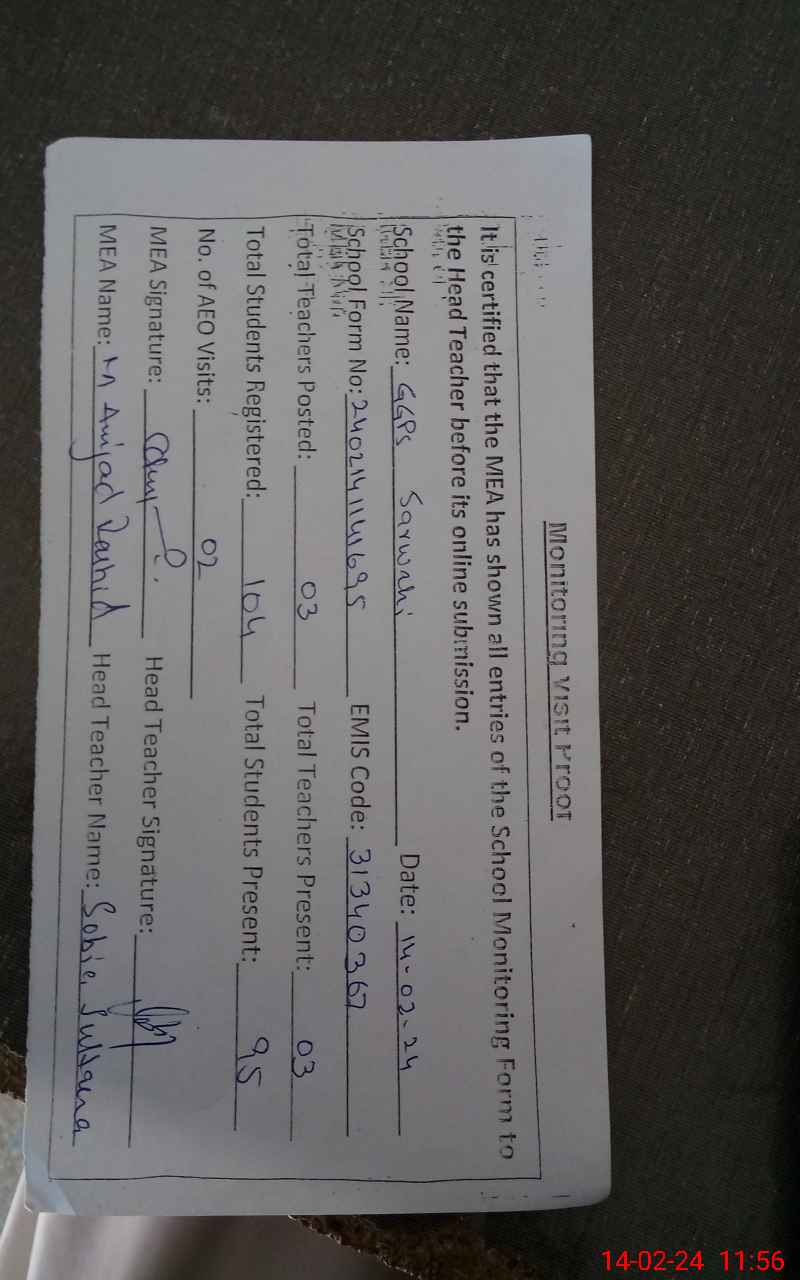 Monitoring Visit Proof
It is certified that the MEA has shown all entries of the School Monitoring Form to
the Head Teacher before its online submission.
School Name: GGPS Sarwahi Date: 14-02-24
School Form No: 2402141141695 EMIS Code: 31340367
Total Teachers Posted: 03 Total Teachers Present: 03
Total Students Registered: 104 Total Students Present: 95
No. of AEO Visits: 02
MEA Signature: Head Teacher Signature:
MEA Name: M Amjad Rashid Head Teacher Name: Sobia Sultana
14-02-24 11:56